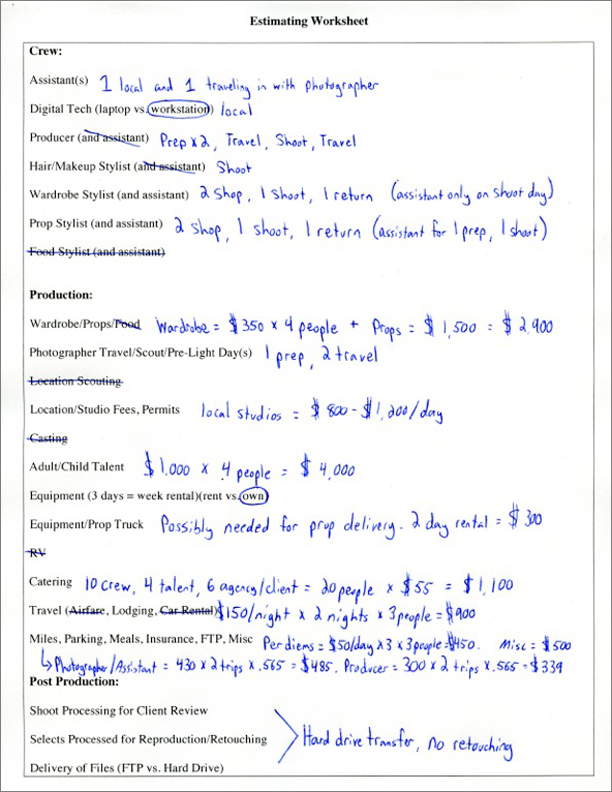 Estimating Worksheet
Crew:
Assistant(s) 1 local and 1 traveling in with photographer
Digital Tech (laptop vs. workstation) local
Producer (and assistant) Prep x 2, Travel, Shoot, Travel
Hair/Makeup Stylist (and assistant) Shoot
Wardrobe Stylist (and assistant) 2 shop, 1 shoot, 1 return (assistant only on shoot day)
Prop Stylist (and assistant) 2 shop, 1 shoot, 1 return (assistant for 1 prep, 1 shoot)
Food Stylist (and assistant)
Production:
Wardrobe/Props/Food Wardrobe = $350 x 4 people + Props = $1,500 = $2,900
Photographer Travel/Scout/Pre-Light Day(s) 1 prep, 2 travel
Location Scouting
Location/Studio Fees, Permits local studios = $800 - $1,200/day
Casting
Adult/Child Talent $1,000 x 4 people = $4,000
Equipment (3 days = week rental)(rent vs. own)
Equipment/Prop Truck Possibly needed for prop delivery. 2 day rental = $300
RV
Catering 10 crew, 4 talent, 6 agency/client = 20 people x $55 = $1,100
Travel (Airfare, Lodging, Car Rental) $150/night x 2 nights x 3 people = $900
Miles, Parking, Meals, Insurance, FTP, Misc Per diems = $50/day x 3 x 3 people = $450. Misc = $500
↳ Photographer/Assistant = 430 x 2 trips x .565 = $485. Producer = 300 x 2 trips x .565 = $339
Post Production:
Shoot Processing for Client Review
Selects Processed for Reproduction/Retouching Hard drive transfer, no retouching
Delivery of Files (FTP vs. Hard Drive)